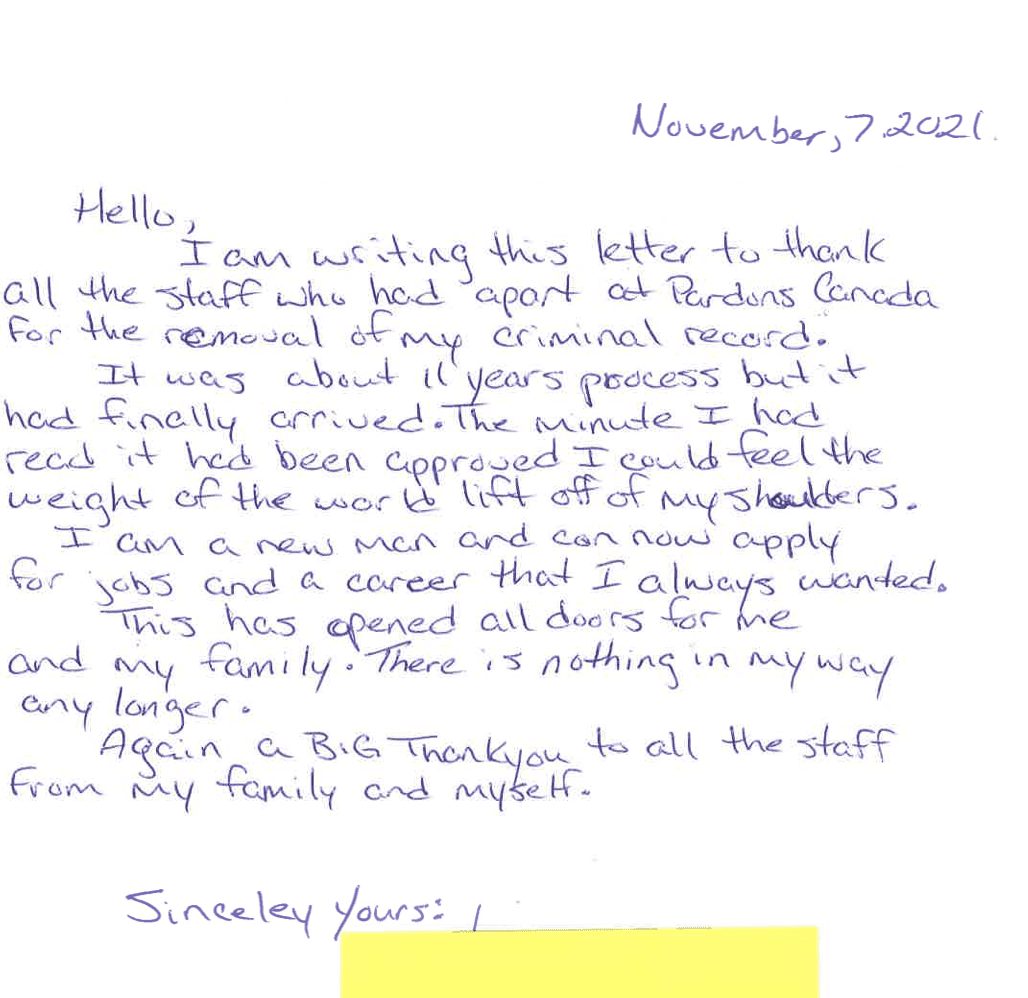 November, 7. 2021.
Hello,
I am writing this letter to thank
all the staff who had apart at Pardons Canada
for the removal of my criminal record.
It was about 11 years process but it
had finally arrived. The minute I had
read it had been approved I could feel the
weight of the world lift off of my shoulders.
I am a new man and can now apply
for jobs and a career that I always wanted.
This has opened all doors for me
and my family. There is nothing in my way
any longer.
Again a BIG Thankyou to all the staff
from my family and myself.
Sinceley Yours: